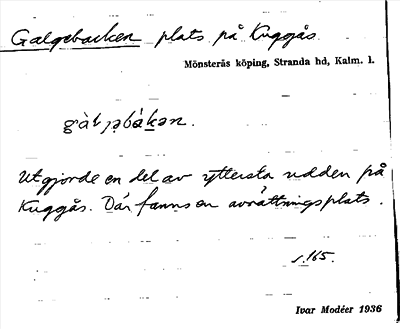 Galgebacken plats på Kuggås.
Mönsterås köping, Stranda hd, Kalm. l.
gàlɟəbákən.
Utgjorde en del av yttersta udden på
Kuggås. Där fanns en avrättningsplats.
s. 165.
Ivar Modéer 1936